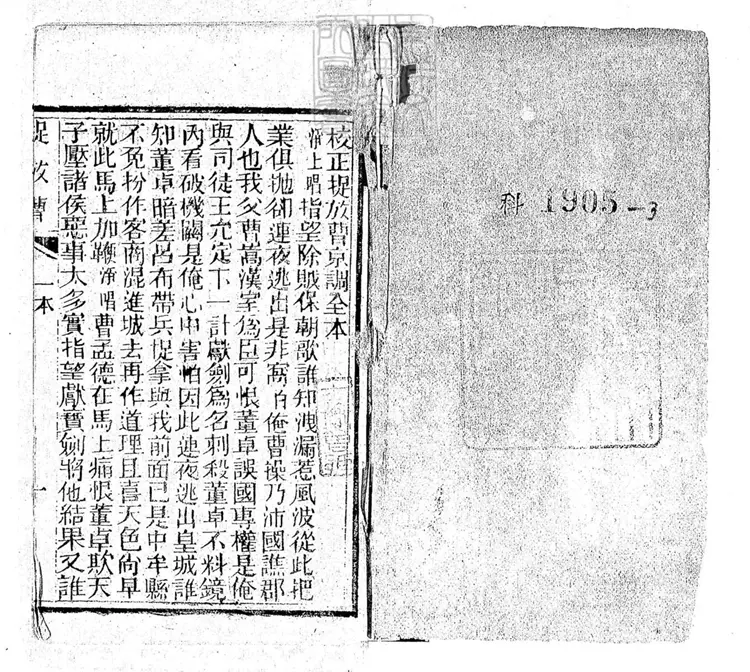 科 1905-3
校正捉放曹京調全本
淨上唱指望除賊保朝歌誰知洩漏惹風波從此把
業俱抛卻連夜逃出是非窩怕俺曹操乃沛國譙郡
人也我父曹嵩漢室爲臣可恨董卓誤國專權是俺
與司徒王允定下一計獻劍爲名刺殺董卓不料鏡
內看破機關是俺心中害怕因此連夜逃出皇城誰
知董卓暗差呂布帶兵捉拿與我前面已是中牟縣
不免扮作客商混進城去再作道理且喜天色尙早
就此馬上加鞭淨唱曹孟德在馬上痛恨董卓欺天
子壓諸侯惡事太多實指望獻寶劍將他結果又誰
捉放曹 一本 一